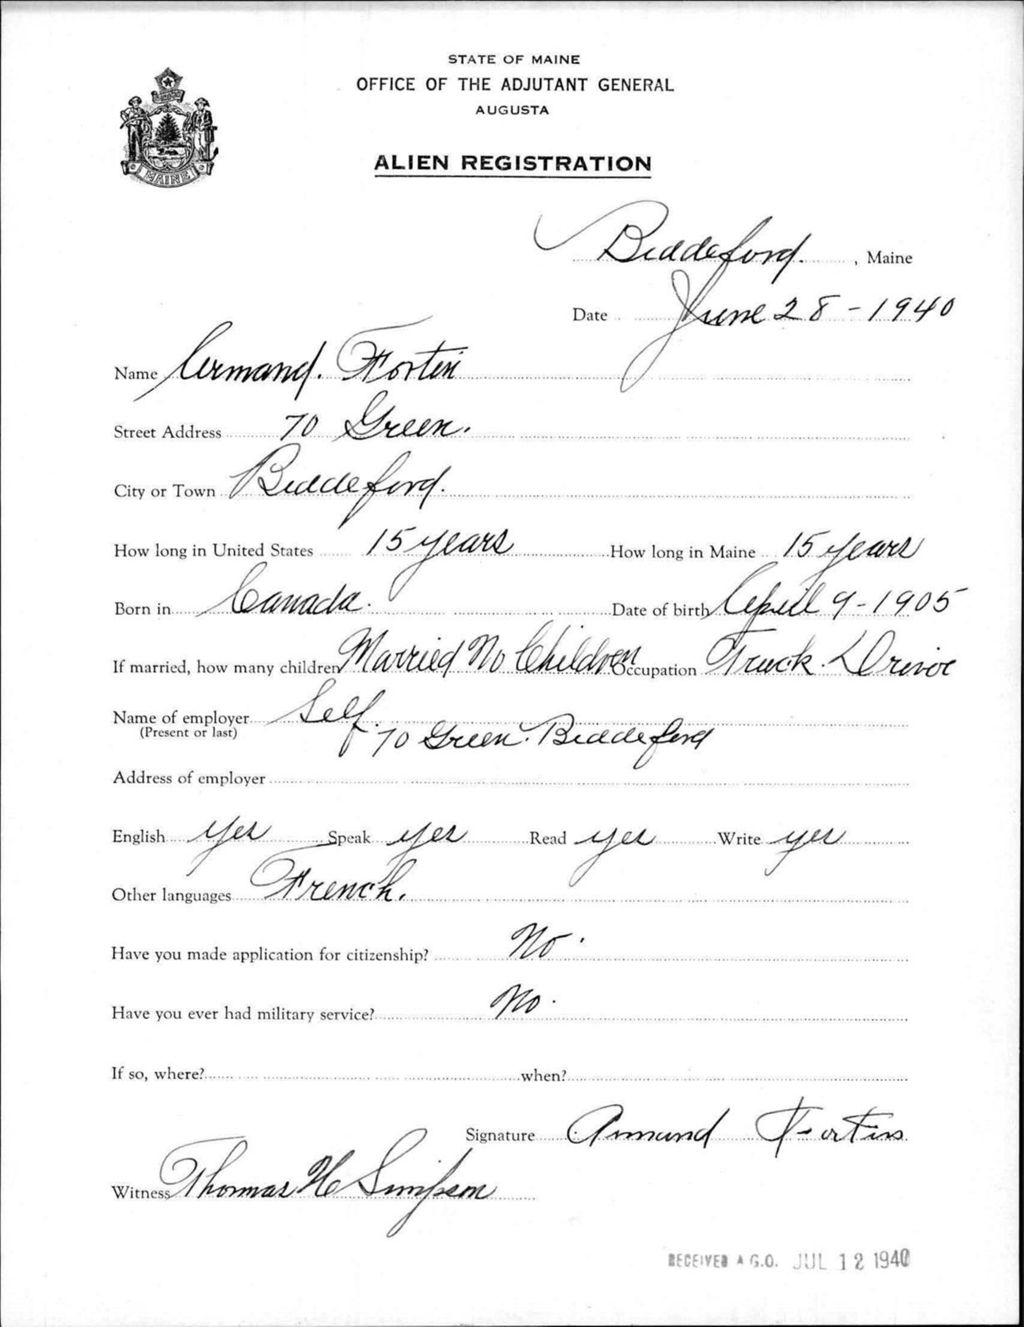 STATE OF MAINE
OFFICE OF THE ADJUTANT GENERAL
AUGUSTA
ALIEN REGISTRATION
MAINE
Biddeford. , Maine
Date June 28-1940
Name Armand. Fortin
Street Address 70 Green.
City or Town Biddeford.
How long in United States 15 years How long in Maine 15 years
Born in Canada. Date of birth April 9-1905
If married, how many children Married No Children Occupation Truck Driver
Name of employer Self.
(Present or last)
70 Green. Biddeford
Address of employer
English yes Speak yes Read yes Write yes
Other languages French.
Have you made application for citizenship? No.
Have you ever had military service? No.
If so, where? when?
Signature Armand Fortin
Witness Thomas H Simpson
RECEIVED A.G.O. JUL 12 1940